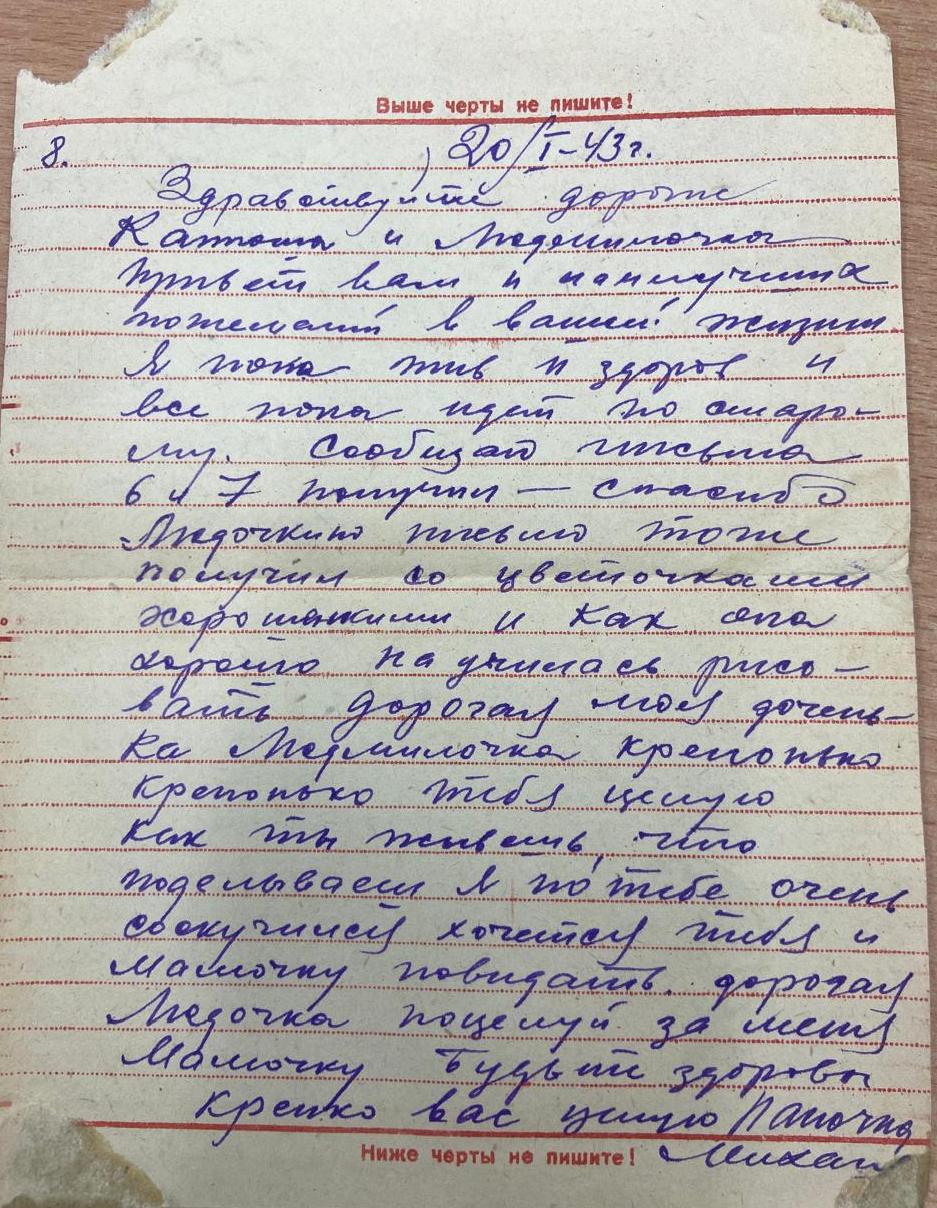 Выше черты не пишите!
8. 20/I-43г.
Здравствуйте дорогие
Катюша и Людмилочка
Привет вам и наилучших
пожеланий в вашей жизни
Я пока жив и здоров и
все пока идет по старо-
му. Сообщаю письма
6 и 7 получил — спасибо
Людочкино письмо тоже
получил со цветочками
хорошенькими и как она
хорошо научилась рисо-
вать Дорогая моя дочень-
ка Людмилочка крепонько
крепонько тебя целую
как ты живешь, что
поделываеш Я по тебе очень
соскучился хочется тебя и
Мамочку повидать. дорогая
Людочка поцелуй за меня
Мамочку Будьте здоровы
Крепко вас целую Папочка
Ниже черты не пишите! Михаил